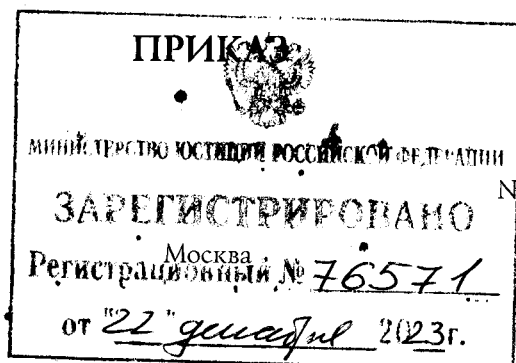 ПРИКАЗ
МИНИСТЕРСТВО ЮСТИЦИИ РОССИЙСКОЙ ФЕДЕРАЦИИ
N
ЗАРЕГИСТРИРОВАНО
Москва
Регистрационный № 76571
от "22" декабря 2023г.